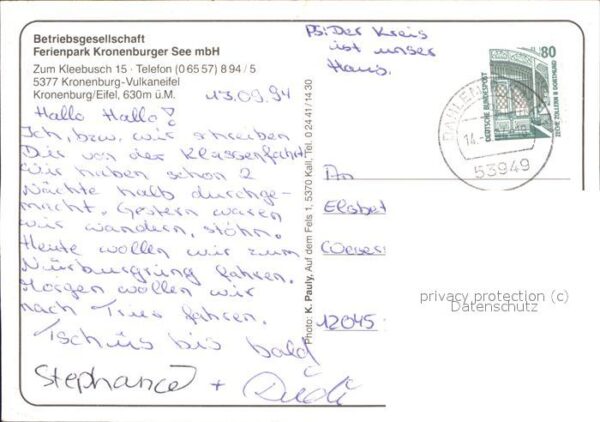 Betriebsgesellschaft
Ferienpark Kronenburger See mbH
Zum Kleebusch 15 · Telefon (0 65 57) 8 94 / 5
5377 Kronenburg-Vulkaneifel
Kronenburg/Eifel, 630m ü.M.
13.09.94
Hallo Hallo!
Ich, bzw. wir schreiben
Dir von der Klassenfahrt
Wir haben schon 2
Nächte halb durchge-
macht. Gestern waren
wir wandern, stöhn.
Heute wollen wir zum
Nürburgring fahren.
Morgen wollen wir
nach Trier fahren.
Tschüs bis bald
Stephanie +
PS: Der Kreis
ist unser
Haus.
80
DEUTSCHE BUNDESPOST
ZECHE ZOLLERN II DORTMUND
14.
53949
Photo: K. Pauly, Auf dem Fels 1, 5370 Kall, Tel. 0 24 41 / 14 30
An
Elsbet
12045
privacy protection (c)
Datenschutz